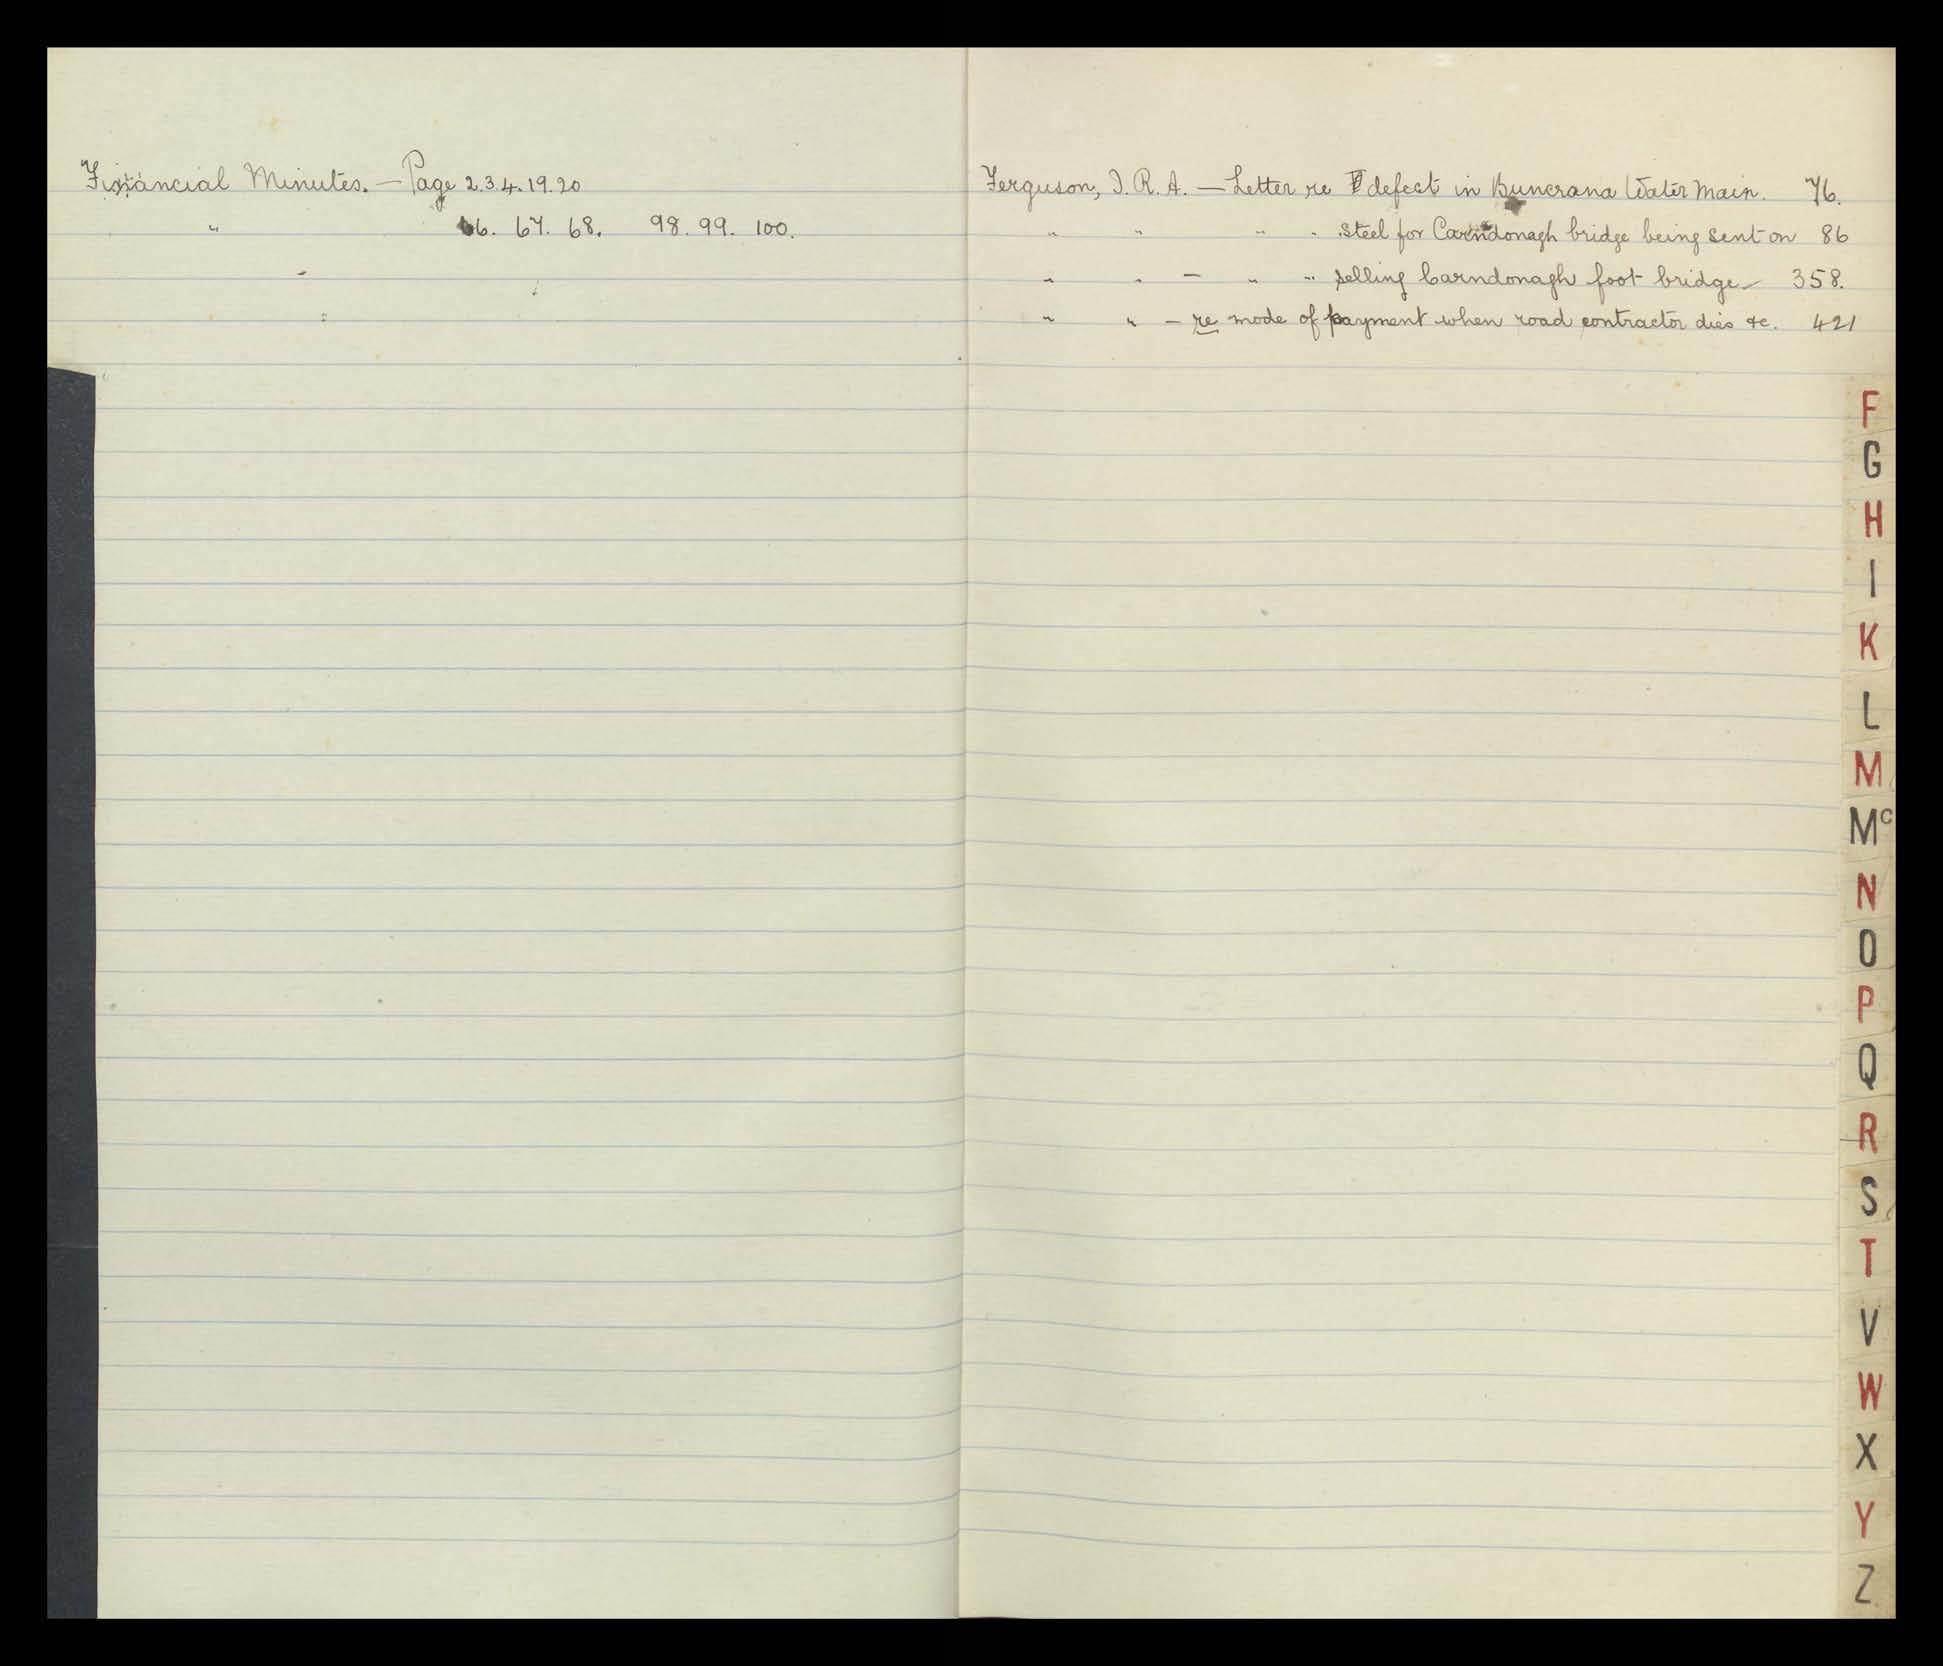 Financial Minutes. — Page 2.3.4.19.20
" 66. 67. 68. 98. 99. 100.
Ferguson, J. R. A. — Letter re defect in Buncrana Water Main. 76.
" " " " steel for Carndonagh bridge being sent on 86
" " — " " selling Carndonagh foot bridge — 358.
" " — re mode of payment when road contractor dies &c. 421
F
G
H
I
K
L
M
Mc
N
O
P
Q
R
S
T
V
W
X
Y
Z